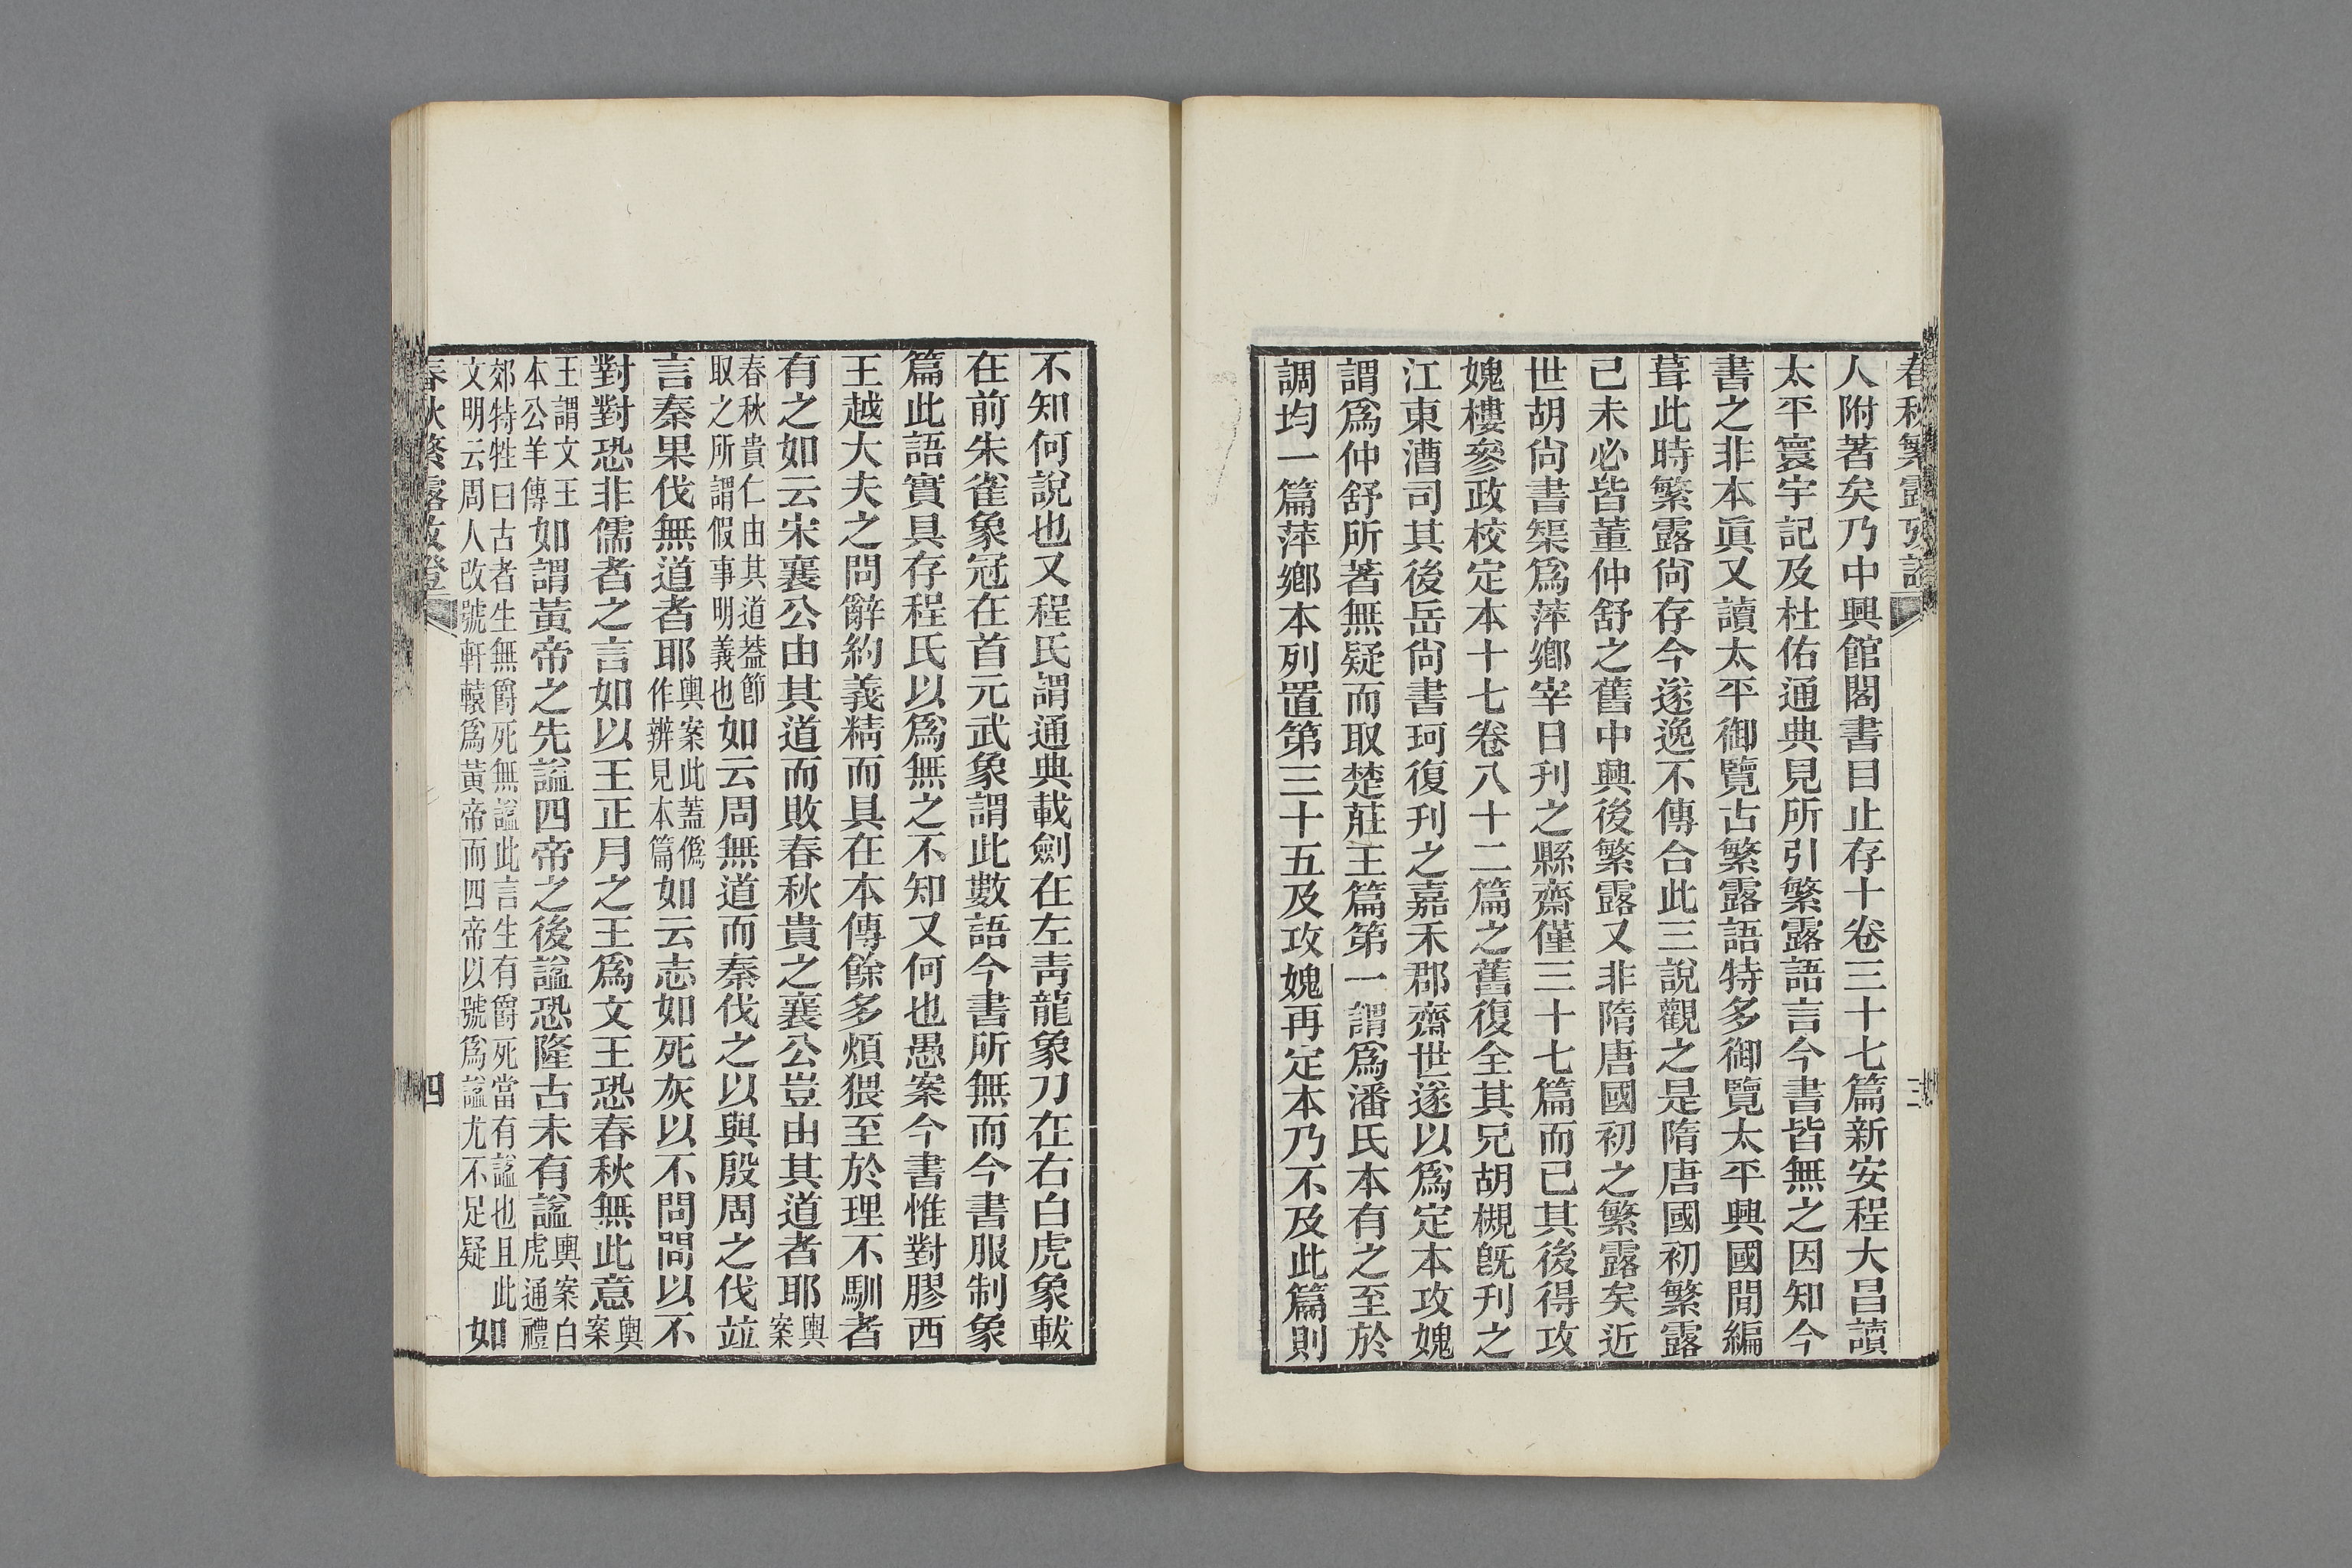 春秋繁露攷證
三
人附著矣乃中興館閣書目止存十卷三十七篇新安程大昌讀
太平寰宇記及杜佑通典見所引繁露語言今書皆無之因知今
書之非本眞又讀太平御覽古繁露語特多御覽太平興國閒編
葺此時繁露尙存今遂逸不傳合此三說觀之是隋唐國初繁露
已未必皆董仲舒之舊中興後繁露又非隋唐國初之繁露矣近
世胡尙書榘爲萍鄕宰日刊之縣齋僅三十七篇而已其後得攻
媿樓參政校定本十七卷八十二篇之舊復全其兄胡槻旣刊之
江東漕司其後岳尙書珂復刊之嘉禾郡齋世遂以爲定本攻媿
謂爲仲舒所著無疑而取楚莊王篇第一謂爲潘氏本有之至於
調均一篇萍鄕本列置第三十五及攻媿再定本乃不及此篇則
不知何說也又程氏謂通典載劍在左靑龍象刀在右白虎象韍
在前朱雀象冠在首元武象謂此數語今書所無而今書服制象
篇此語實具存程氏以爲無之不知又何也愚案今書惟對膠西
王越大夫之問辭約義精而具在本傳餘多煩猥至於理不馴者
有之如云宋襄公由其道而敗春秋貴之襄公豈由其道者耶輿案
春秋貴仁由其道葢節取之所謂假事明義也如云周無道而秦伐之以與殷周之伐竝
言秦果伐無道者耶輿案此蓋僞作辨見本篇如云志如死灰以不問問以不
對對恐非儒者之言如以王正月之王爲文王恐春秋無此意輿案
王謂文王本公羊傳如謂黃帝之先謚四帝之後謚恐隆古未有謚輿案白虎通禮
郊特牲曰古者生無爵死無謚此言生有爵死當有謚也且此文明云周人改號軒轅爲黃帝而四帝以號爲謚尤不足疑如
春秋繁露攷證
四